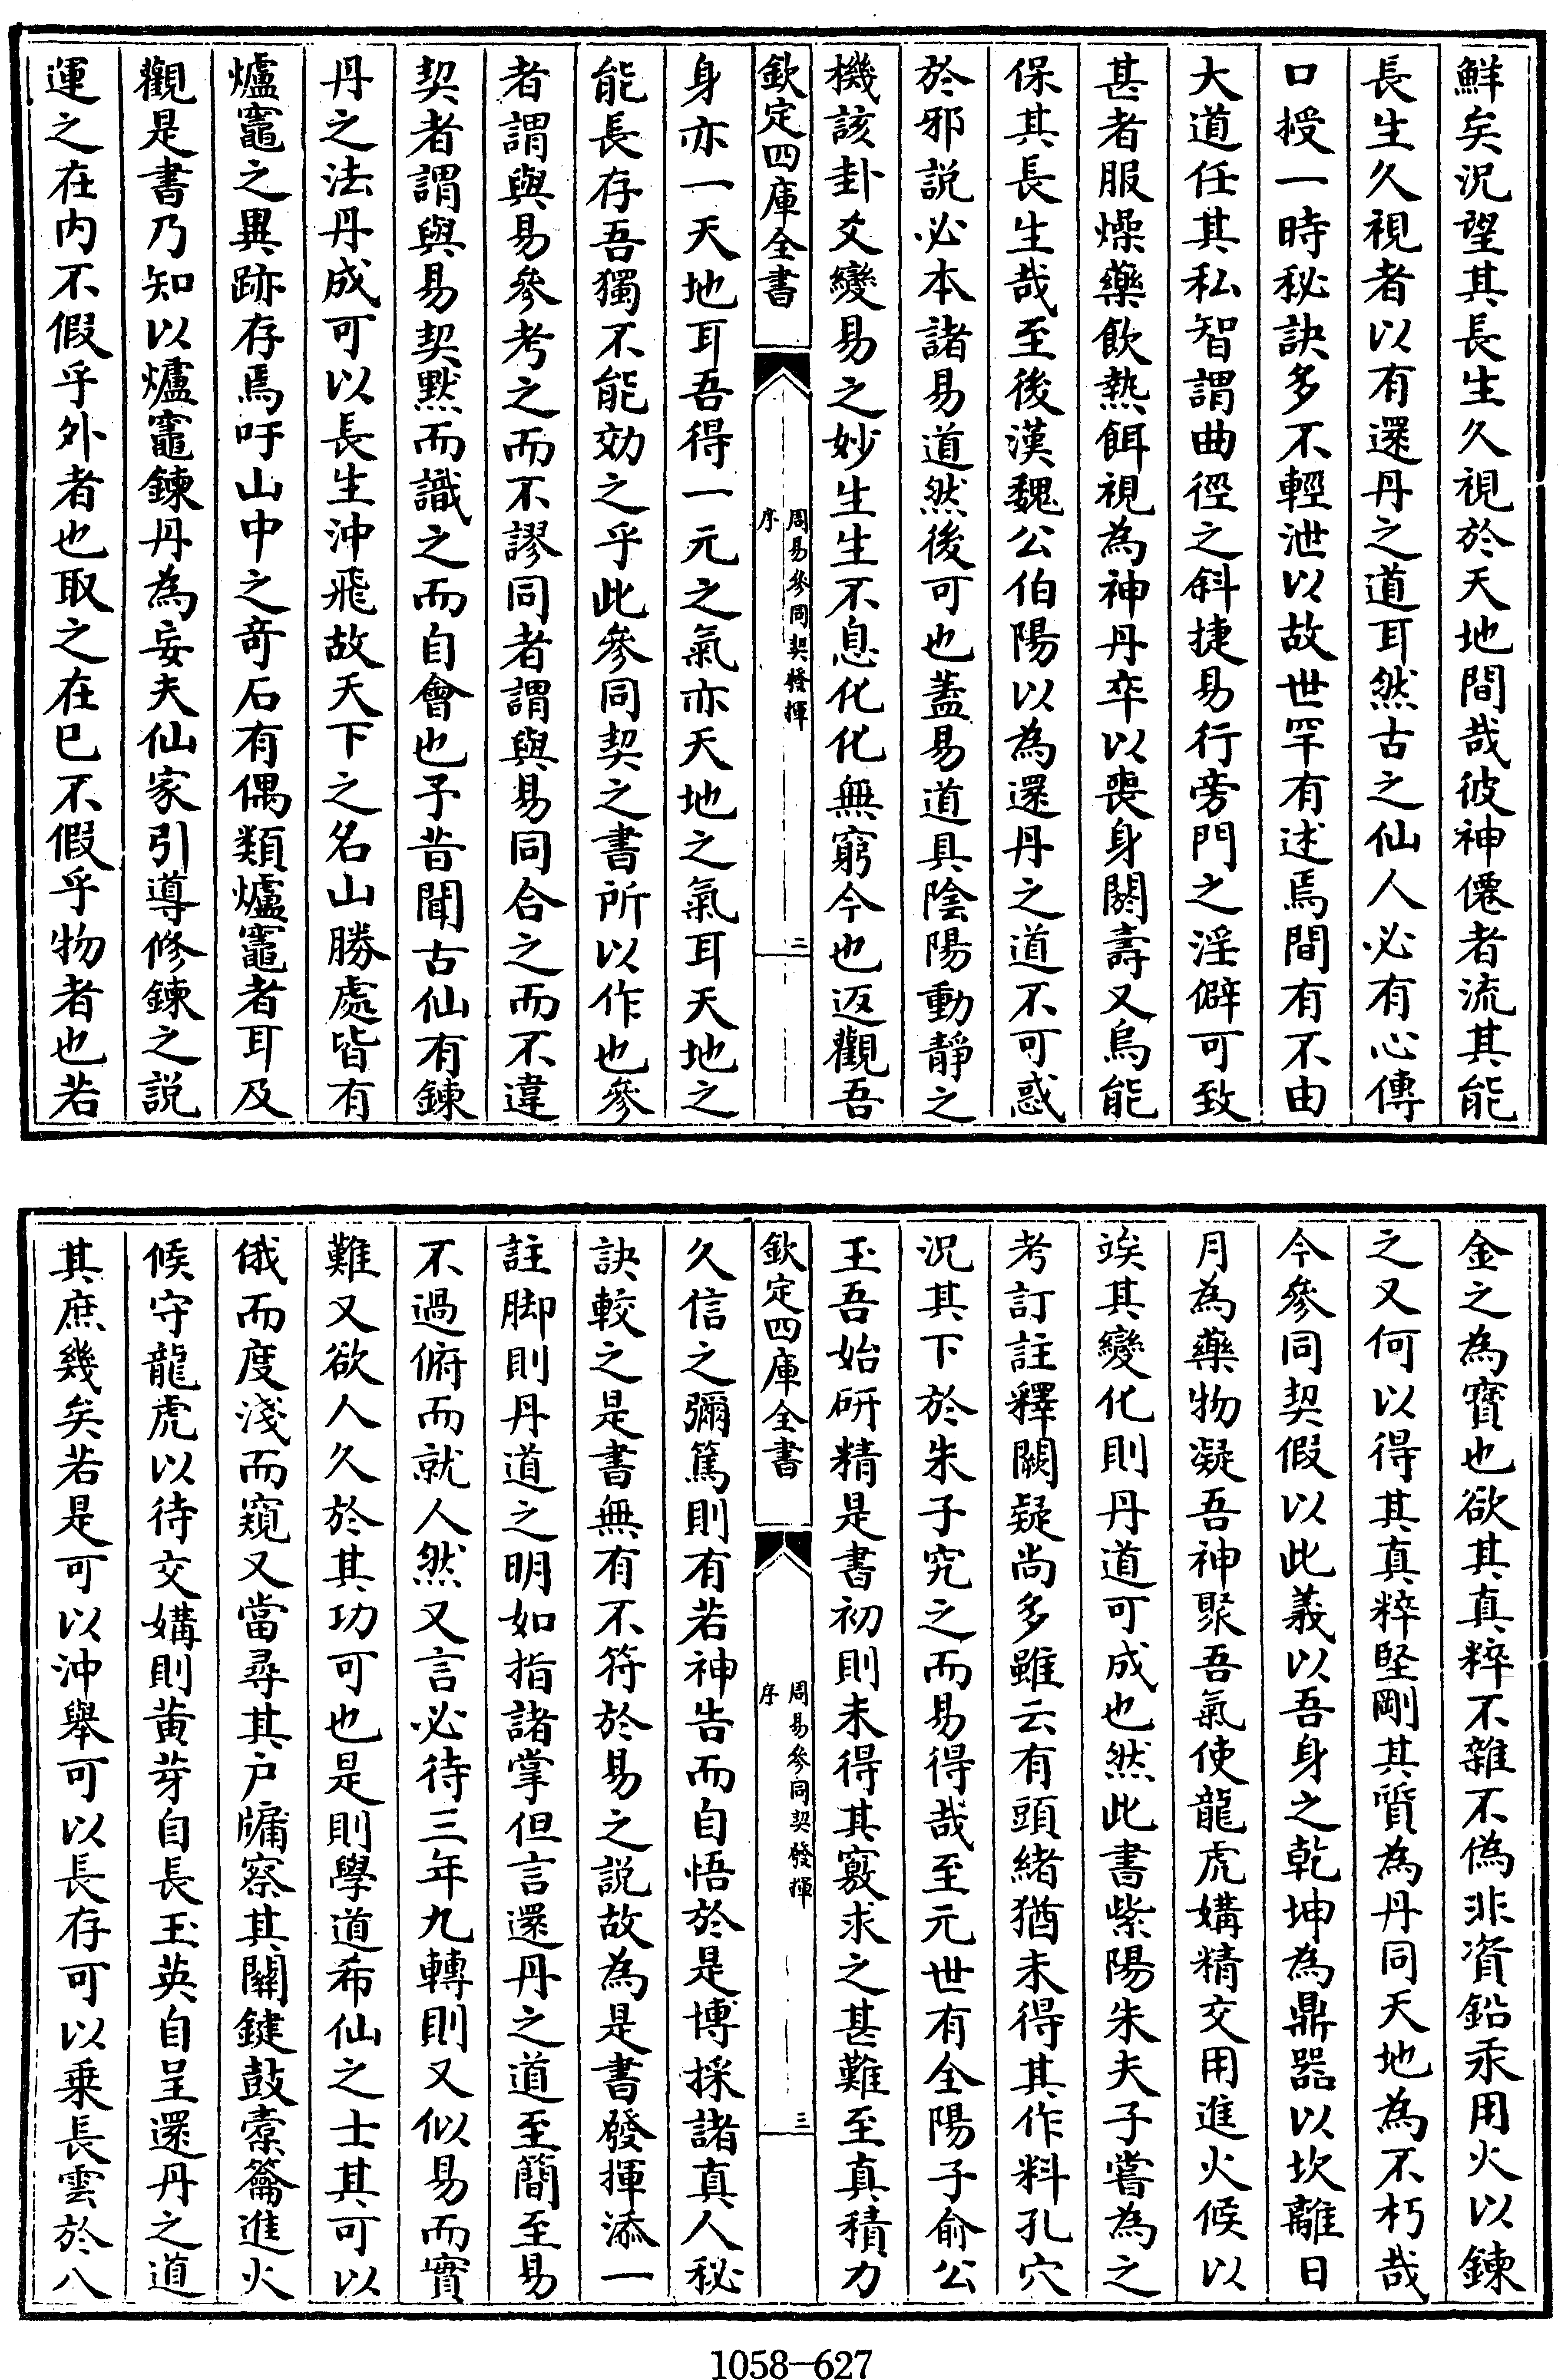 鮮矣況望其長生久視於天地間哉彼神僊者流其能
長生久視者以有還丹之道耳然古之仙人必有心傳
口授一時秘訣多不輕泄以故世罕有述焉間有不由
大道任其私智謂曲徑之斜捷易行旁門之淫僻可致
甚者服燥藥飲熱餌視為神丹卒以喪身閼壽又烏能
保其長生哉至後漢魏公伯陽以為還丹之道不可惑
於邪説必本諸易道然後可也葢易道具陰陽動靜之
機該卦爻變易之妙生生不息化化無窮今也返觀吾
欽定四庫全書
周易參同契發揮
序
二
身亦一天地耳吾得一元之氣亦天地之氣耳天地之
能長存吾獨不能効之乎此參同契之書所以作也參
者謂與易參考之而不謬同者謂與易同合之而不違
契者謂與易契黙而識之而自會也予昔聞古仙有鍊
丹之法丹成可以長生沖飛故天下之名山勝處皆有
爐竈之異跡存焉吁山中之竒石有偶類爐竈者耳及
觀是書乃知以爐竈鍊丹為妄夫仙家引導修鍊之説
運之在内不假乎外者也取之在已不假乎物者也若
金之為寳也欲其真粹不雜不偽非資鉛汞用火以鍊
之又何以得其真粹堅剛其質為丹同天地為不朽哉
今參同契假以此義以吾身之乾坤為鼎器以坎離日
月為藥物凝吾神聚吾氣使龍虎媾精交用進火候以
竢其變化則丹道可成也然此書紫陽朱夫子嘗為之
考訂註釋闕疑尚多雖云有頭緒猶未得其作料孔穴
況其下於朱子究之而易得哉至元世有全陽子俞公
玉吾始研精是書初則未得其竅求之甚難至真積力
欽定四庫全書
周易參同契發揮
序
三
久信之彌篤則有若神告而自悟於是博採諸真人秘
訣較之是書無有不符於易之説故為是書發揮添一
註脚則丹道之明如指諸掌但言還丹之道至簡至易
不過俯而就人然又言必待三年九轉則又似易而實
難又欲人久於其功可也是則學道希仙之士其可以
俄而度淺而窺又當尋其戶牖察其關鍵鼓橐籥進火
候守龍虎以待交媾則黄芽自長玉英自呈還丹之道
其庶幾矣若是可以沖舉可以長存可以乗長雲於八
1058-627